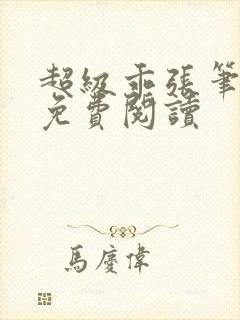 超級乖張筆
免費閱讀
馬慶偉